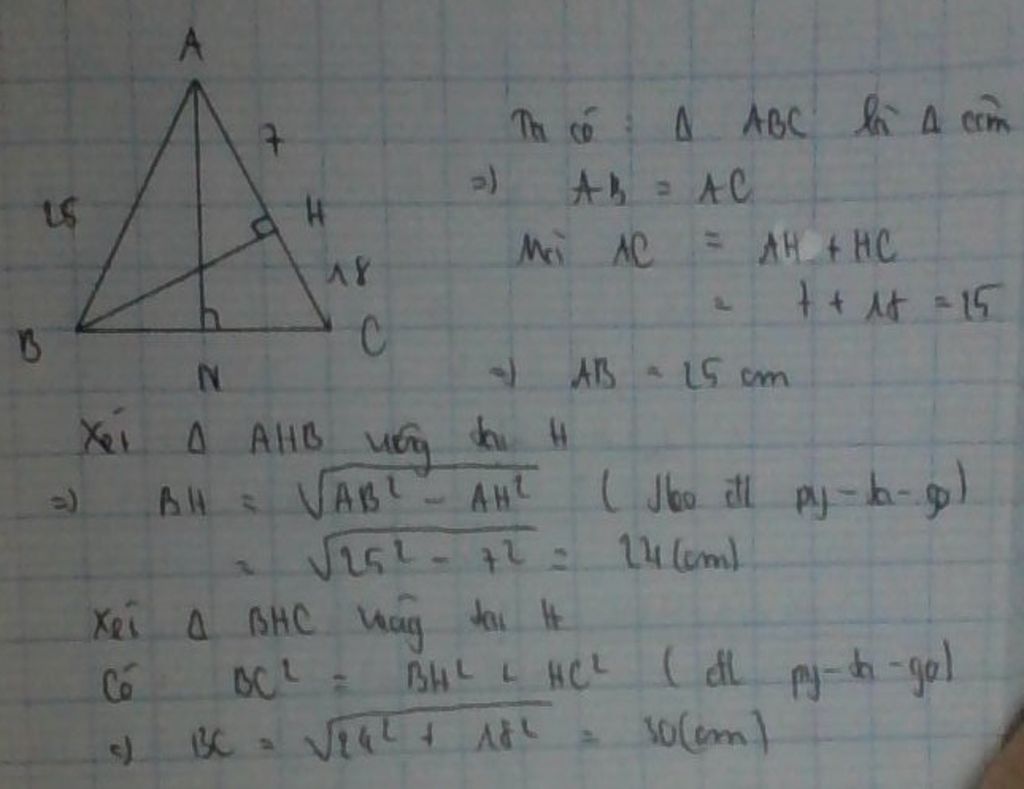 A
7
25
H
18
B
N
C
Ta có : Δ ABC là Δ cân
=) AB = AC
Mà AC = AH + HC
= 7 + 18 = 25
=) AB = 25 cm
Xét Δ AHB vuông tại H
=) BH = √AB² - AH² ( theo đl py-ta-go)
= √25² - 7² = 24 (cm)
Xét Δ BHC vuông tại H
Có BC² = BH² + HC² ( đl py-ta-go)
=) BC = √24² + 18² = 30(cm)